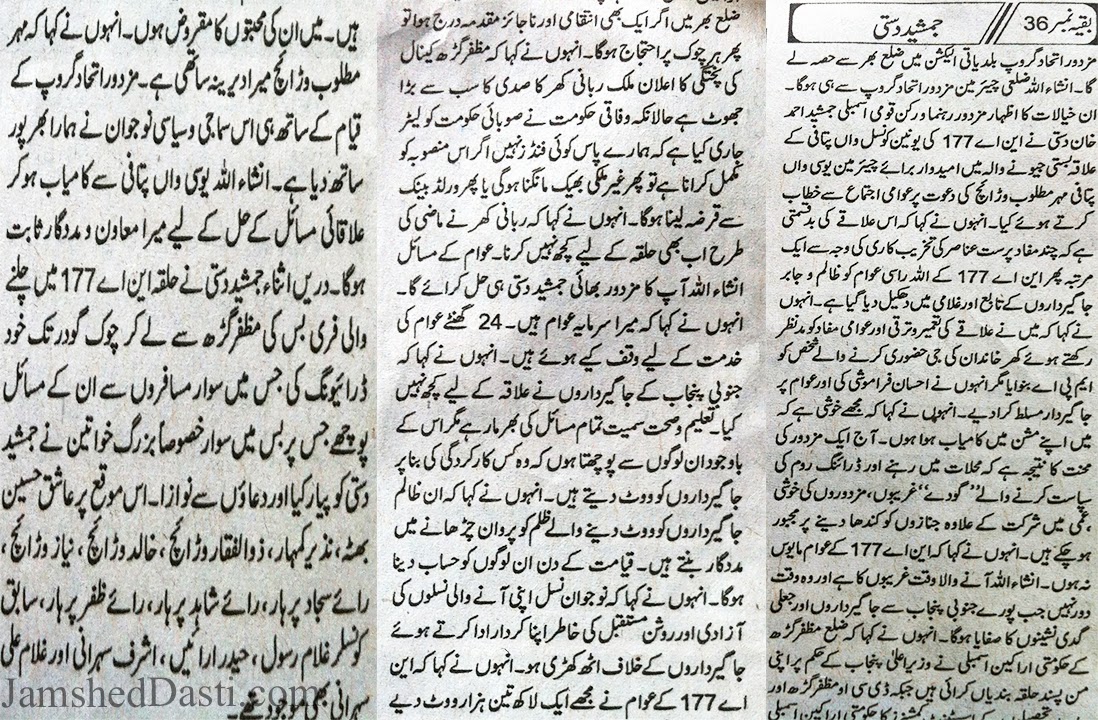 بقیہ نمبر 36 جمشید دستی
مزدور اتحاد گروپ بلدیاتی الیکشن میں ضلع بھر سے حصہ لے
گا۔ انشاء اللہ ضلعی چیئرمین مزدور اتحاد گروپ سے ہی ہوگا۔
ان خیالات کا اظہار مزدور رہنما و رکن قومی اسمبلی جمشید احمد
خان دستی نے این اے 177 کی یونین کونسل واں پتافی کے
علاقہ بستی جیونے والہ میں امیدوار برائے چیئرمین یوسی واں
پتافی مہر مطلوب وڑائچ کی دعوت پر عوامی اجتماع سے خطاب
کرتے ہوئے کیا۔ انہوں نے کہا کہ اس علاقے کی بدقسمتی
ہے کہ چند مفاد پرست عناصر کی تخریب کاری کی وجہ سے ایک
مرتبہ پھر این اے 177 کے اللہ راسی عوام کو ظالم و جابر
جاگیرداروں کے تابع اور غلامی میں دھکیل دیا گیا ہے۔ انہوں
نے کہا کہ میں نے علاقے کی تعمیر و ترقی اور عوامی مفاد کو مدنظر
رکھتے ہوئے کھر خاندان کی جی حضوری کرنے والے شخص کو
ایم پی اے بنوایا مگر انہوں نے احسان فراموشی کی اور عوام پر
جاگیردار مسلط کرا دیے۔ انہوں نے کہا کہ مجھے خوشی ہے کہ
میں اپنے مشن میں کامیاب ہوا ہوں۔ آج ایک مزدور کی
محنت کا نتیجہ ہے کہ محلات میں رہنے اور ڈرائنگ روم کی
سیاست کرنے والے ”گودے“ غریبوں، مزدوروں کی خوشی
،غمی میں شرکت کے علاوہ جنازوں کو کندھا دینے پر مجبور
ہو چکے ہیں۔ انہوں نے کہا کہ این اے 177 کے عوام مایوس
نہ ہوں۔ انشاء اللہ آنے والا وقت غریبوں کا ہے اور وہ وقت
دور نہیں جب پورے جنوبی پنجاب سے جاگیرداروں اور جعلی
گدی نشینوں کا صفایا ہوگا۔ انہوں نے کہا کہ ضلع مظفرگڑھ
کے حکومتی اراکین اسمبلی نے وزیراعلیٰ پنجاب کے حکم پر اپنی
من پسند حلقہ بندیاں کرائی ہیں جبکہ ڈی سی او مظفرگڑھ اور
ضلع بھر میں اگر ایک بھی انتقامی اور ناجائز مقدمہ درج ہوا تو
پھر ہر چوک پر احتجاج ہوگا۔ انہوں نے کہا کہ مظفرگڑھ کینال
کی پختگی کا اعلان ملک ربانی کھر کا صدی کا سب سے بڑا
جھوٹ ہے حالانکہ وفاقی حکومت نے صوبائی حکومت کو لیٹر
جاری کیا ہے کہ ہمارے پاس کوئی فنڈز نہیں اگر اس منصوبہ کو
مکمل کرانا ہے تو پھر غیر ملکی بھیک مانگنا ہوگی یا پھر ورلڈ بینک
سے قرضہ لینا ہوگا۔ انہوں نے کہا کہ ربانی کھر نے ماضی کی
طرح اب بھی حلقہ کے لیے کچھ نہیں کرنا۔ عوام کے مسائل
انشاء اللہ آپ کا مزدور بھائی جمشید دستی ہی حل کرائے گا۔
انہوں نے کہا کہ میرا سرمایہ عوام ہیں۔ 24 گھنٹے عوام کی
خدمت کے لیے وقف کیے ہوئے ہیں۔ انہوں نے کہا کہ
جنوبی پنجاب کے جاگیرداروں نے علاقہ کے لیے کچھ نہیں
کیا۔ تعلیم و صحت سمیت تمام مسائل کی بھرمار ہے مگر اس کے
باوجود ان لوگوں سے پوچھتا ہوں کہ وہ کس کارکردگی کی بنا پر
جاگیرداروں کو ووٹ دیتے ہیں۔ انہوں نے کہا کہ ان ظالم
جاگیرداروں کو ووٹ دینے والے ظلم کو پروان چڑھانے میں
مددگار بنتے ہیں۔ قیامت کے دن ان لوگوں کو حساب دینا
ہوگا۔ انہوں نے کہا کہ نوجوان نسل اپنی آنے والی نسلوں کی
آزادی اور روشن مستقبل کی خاطر اپنا کردار ادا کرتے ہوئے
جاگیرداروں کے خلاف اٹھ کھڑی ہو۔ انہوں نے کہا کہ این
اے 177 کے عوام نے مجھے ایک لاکھ تین ہزار ووٹ دیے
ہیں۔ میں ان کی محبتوں کا مقروض ہوں۔ انہوں نے کہا کہ مہر
مطلوب وڑائچ میرا دیرینہ ساتھی ہے۔ مزدور اتحاد گروپ کے
قیام کے ساتھ ہی اس سماجی و سیاسی نوجوان نے ہمارا بھرپور
ساتھ دیا ہے۔ انشاء اللہ یوسی واں پتافی سے کامیاب ہو کر
علاقائی مسائل کے حل کے لیے میرا معاون و مددگار ثابت
ہوگا۔ دریں اثناء جمشید دستی نے حلقہ این اے 177 میں چلنے
والی فری بس کی مظفرگڑھ سے لے کر چوک گودر تک خود
ڈرائیونگ کی جس میں سوار مسافروں سے ان کے مسائل
پوچھے جس پر بس میں سوار خصوصاً بزرگ خواتین نے جمشید
دستی کو پیار کیا اور دعاؤں سے نوازا۔ اس موقع پر عاشق حسین
بھٹہ، نذیر کمہار، ذوالفقار وڑائچ، خالد وڑائچ، نیاز وڑائچ،
رائے سجاد پرہار، رائے شاہد پرہار، رائے ظفر پرہار، سابق
کونسلر غلام رسول، حیدر ارائیں، اشرف سہرانی اور غلام علی
سہرانی بھی موجود تھے۔
JamshedDasti.com